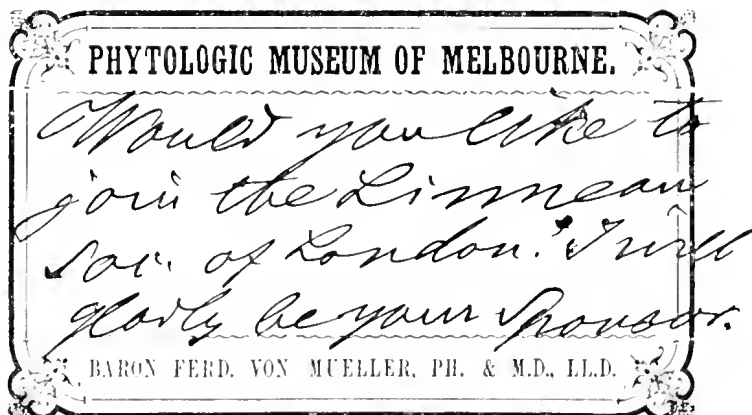 PHYTOLOGIC MUSEUM OF MELBOURNE.
Would you like to
join the Linnean
soc. of London? I will
gladly be your sponsor.
BARON FERD. VON MUELLER, PH. & M.D., LL.D.